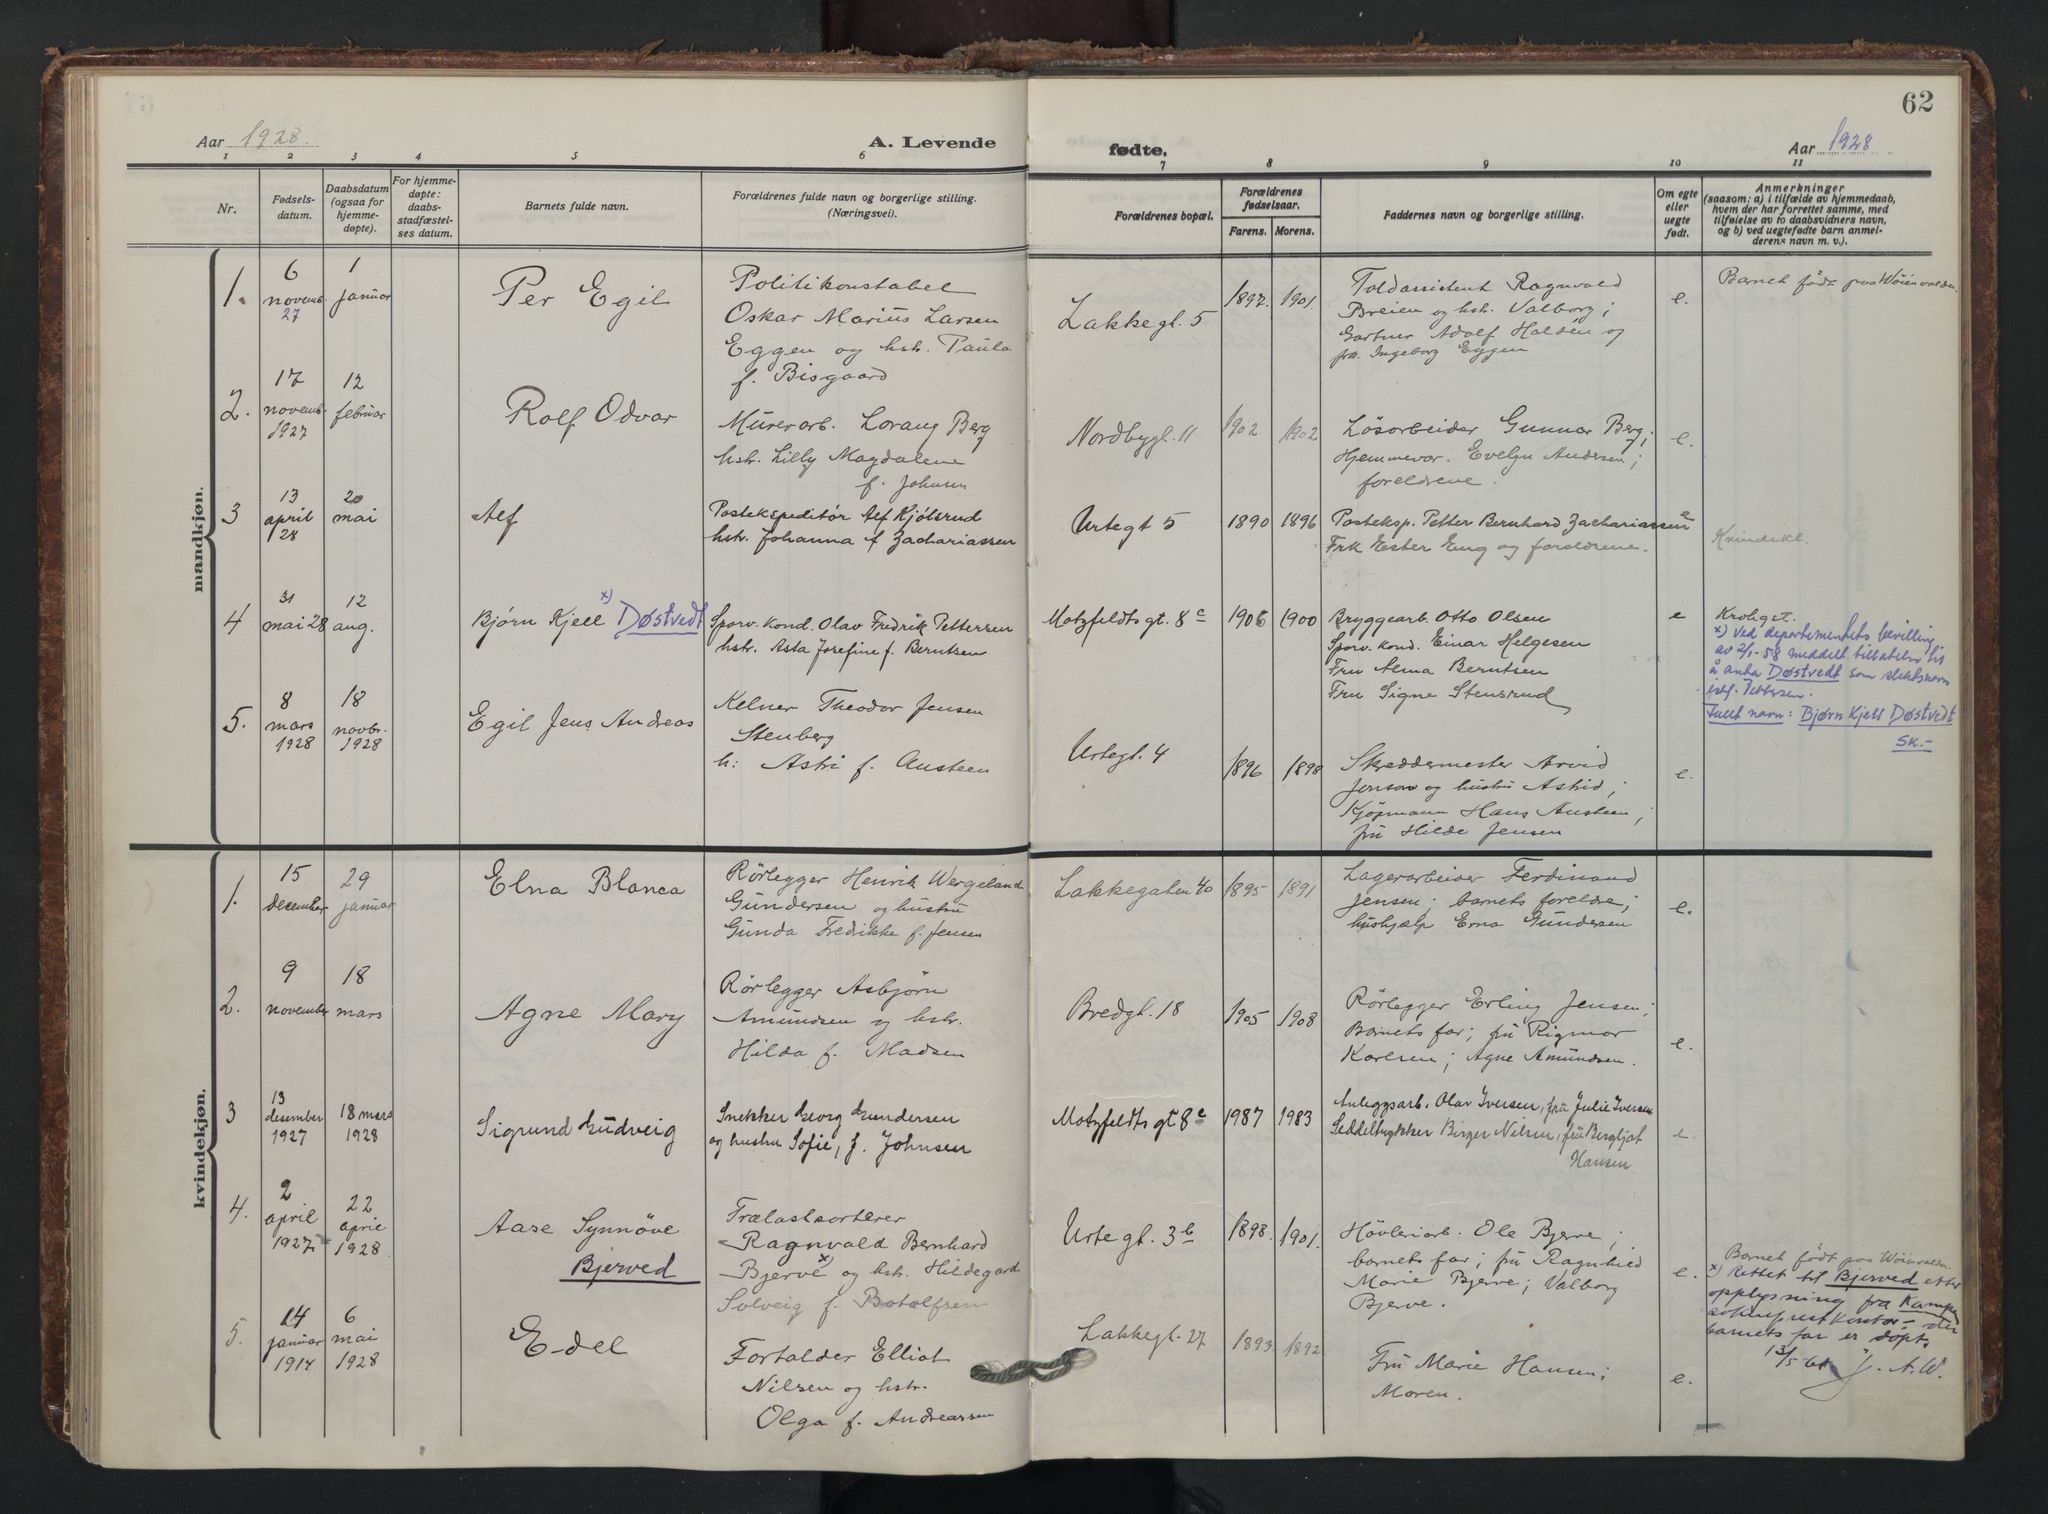 62
Aar 1928.
A. Levende
fødte.
Aar 1928
1 2 3 4 5 6 7 8 9 10 11
Nr.
Fødsels-
datum.
Daabsdatum
(ogsaa for
hjemme-
døpte).
For hjemme-
døpte:
daabs-
stadfæstel-
ses datum.
Barnets fulde navn.
Forældrenes fulde navn og borgerlige stilling.
(Næringsvei).
Forældrenes bopæl.
Forældrenes
fødselsaar.
Farens. Morens.
Faddernes navn og borgerlige stilling.
Om egte
eller
uegte
født.
Anmerkninger
(saasom: a) i tilfælde av hjemmedaab,
hvem der har forrettet samme, med
tilføielse av to daabsvidners navn,
og b) ved uegtefødte barn anmel-
derens navn m. v.).
mandkjøn.
1.
6
novemb.
27
1
januar
Per Egil
Politikonstabel
Oskar Marius Larsen
Eggen og hstr. Paula
f. Bisgaard
Lakkegt. 5
1897. 1901.
Toldassistent Ragnvald
Breien og hst. Valborg;
Gartner Adolf Haldén og
frk. Ingeborg Eggen
e.
Barnet født paa Wøienvolden.
2.
17
novemb.
1927
12
februar
Rolf Odvar
Murerarb. Lorang Berg
hstr. Lilly Magdalene
f. Johnsen
Nordbygt. 11
1902 1902
Løsarbeider Gunnar Berg;
Hjemmevær. Evelyn Andersen;
foreldrene.
e.
3
13
april
28
20
mai
Alf
Postekspeditør Alf Kjølsrud
hstr. Johanna f Zachariassen
Urtegt 5
1890 1896
Posteksp. Petter Bernhard Zachariassen
Frk Ester Eng og foreldrene.
e
Kvindekl.
4
31
mai 28
12
aug.
Bjørn Kjell x) Døstvedt
Sporv. Kond. Olav Fredrik Pettersen
hstr. Asta Josefine f. Berntsen
Motzfeldts gt. 8c
1906 1900
Bryggearb. Otto Olsen
Sporv. kond. Einar Helgesen
Fru Alma Berntsen
Fru Signe Stensrud
e
Kroliget.
x) Ved departementets bevilling
av 2/1-58 meddelt tillatelse til
å anta Døstvedt som slektsnavn
istf. Pettersen.
Fullt navn: Bjørn Kjell Døstvedt
Sk.-
5.
8
mars
1928
18
novbr.
1928
Egil Jens Andreas
Kelner Theodor Jensen
Stenberg
h: Astri f. Austeen
Urtegt. 4
1896 1898
Skreddermester Arvid
Jenson og hustru Astrid;
Kjøpmann Hans Austeen;
fru Hilde Jensen
e.
kvindekjøn.
1.
15
december
29
januar
Elna Blanca
Rørlegger Henrik Wergeland
Gundersen og hustru
Gunda Fredrikke f. Jensen
Lakkegaten 40
1895 1891
Lagerarbeider Ferdinand
Jensen; barnets foreldre;
hushjælp Erna Gundersen
e.
2.
9
november
18
mars
Agne Mary
Rørlegger Asbjørn
Amundsen og hstr.
Hilda f. Madsen
Bredgt. 18
1905 1908
Rørlegger Erling Jensen;
Barnets far; fru Rigmor
Karlsen; Agne Amundsen.
e.
3
13
desember
1927
18 mars
1928
Sigrund Ludveig
Snekker Georg Gundersen
og hustru Sofie, f. Johnsen
Motzfeldts gt 8c
1987 1983
Anleggsarb. Olav Iversen, fru Julie Iversen
Seddeltrykker Birger Nilsen, fru Bergljot
Hansen
e.
4.
2
april
1927
22
april
1928
Aase Synnöve
Bjerved
Trælastsorterer
Ragnvald Bernhard
Bjerve x) og hstr. Hildegard
Solveig f. Botolfsen
Urtegt. 3b
1898. 1901.
Høvleriarb. Ole Bjerve;
barnets far; fru Ragnhild
Marie Bjerve; Valborg
Bjerve.
e.
Barnet født paa Wøienvolden.
x) Rettet til Bjerved etter
opplysning fra Kampen
sokneprestkontor - der
barnets far er døpt.
13/5 61 J. A. W.
5.
14
januar
1914
6
mai
1928
Edel
Fortalder Elliot
Nilsen og hstr.
Olga f. Andreassen
Lakkegt. 27
1893 1892
Fru Marie Hansen;
Moren.
e.